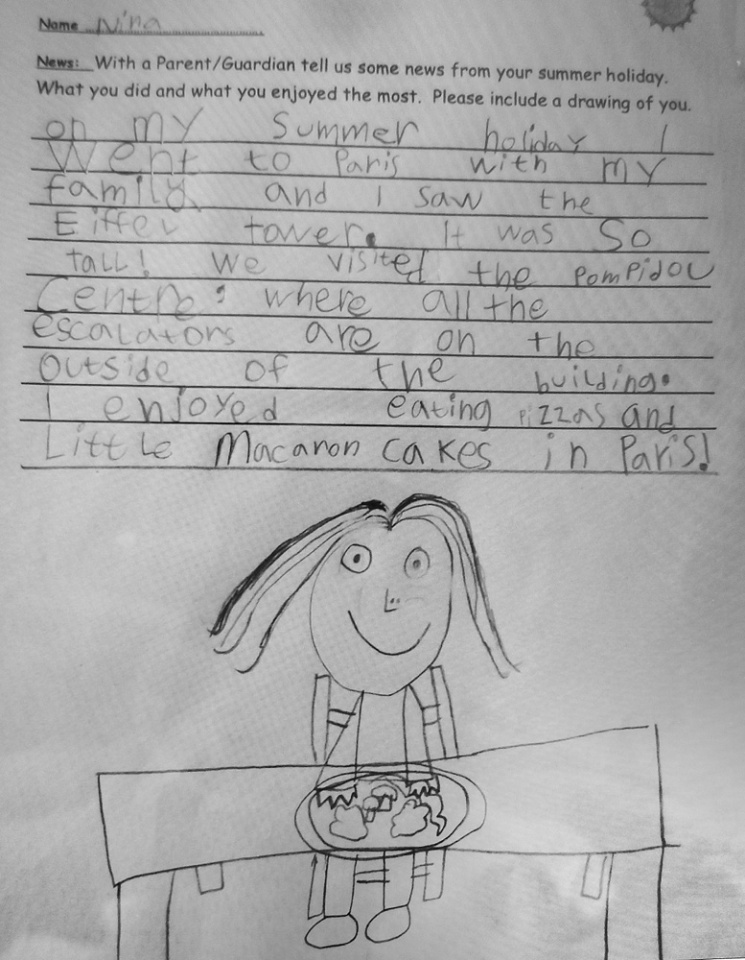 Name Nina
News: With a Parent/Guardian tell us some news from your summer holiday.
What you did and what you enjoyed the most. Please include a drawing of you.
on my Summer holiday I
Went to Paris with my
family and I saw the
Eiffel tower. It was So
tall! We visited the Pompidou
Centre: where all the
escalators are on the
outside of the building.
I enjoyed eating pizzas and
Little Macaron cakes in Paris!